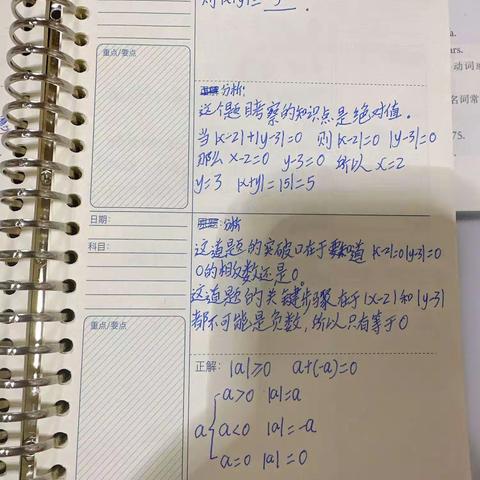 则|x+y|= 5 .
重点/要点
分析:
这个题目考察的知识点是绝对值。
当|x-2|+|y-3|=0 则|x-2|=0 |y-3|=0
那么 x-2=0 y-3=0 所以 x=2
y=3 |x+y|=|5|=5
日期:
科目:
分析
这道题的突破口在于要知道 |x-2|=0 |y-3|=0
0的相反数还是0。
这道题的关键步骤在于|x-2|和|y-3|
都不可能是负数,所以只有等于0
重点/要点
正解: |a|≥0 a+(-a)=0
a>0 |a|=a
a a<0 |a|=-a
a=0 |a|=0
a.
ars.
动词
名词常
75.